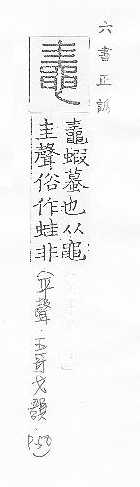 六書正訛
鼃
鼃蝦蟇也从黽
圭聲俗作蛙非
(平聲．五哥戈韻 P.50)